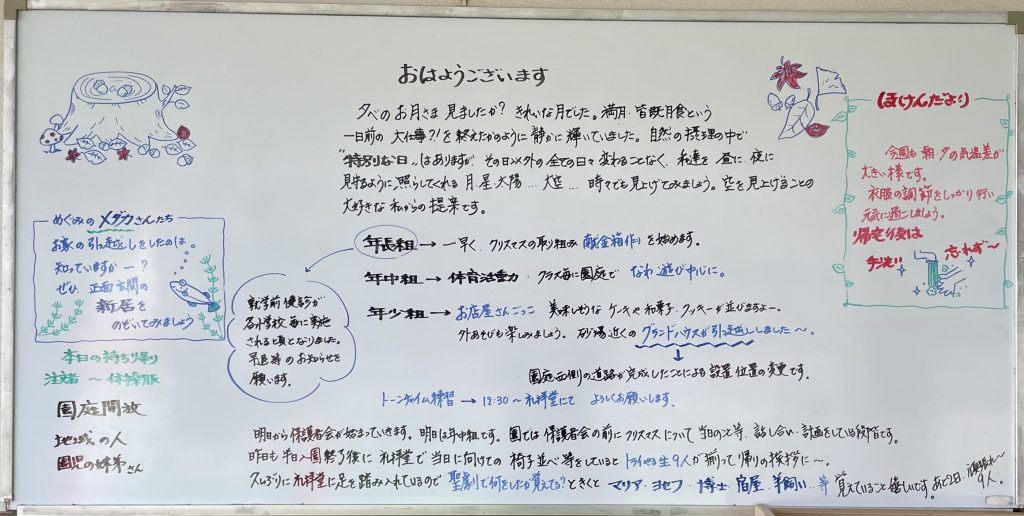 おはようございます
夕べのお月さま 見ましたか? きれいな月でした。満月 皆既月食という
一日前の 大仕事?!を終えたかのように静かに輝いていました。自然の摂理の中で
"特別な日"はありますが その日以外の全ての日々 変わることなく 私達を 昼に 夜に
見守るように照らしてくれる 月 星 太陽… 大空… 時々でも見上げてみましょう。空を見上げることの
大好きな私からの提案です。
年長組→一早く、クリスマスの取り組み 献金箱作りを始めます。
年中組→体育活動 クラス毎に園庭で なわ遊び中心に。
年少組→お店屋さんごっこ 美味しそうな ケーキや和菓子 クッキーが並びますよー。
外あそびも楽しみましょう。砂場近くのグランドハウスが引っ越ししました〜。
園庭西側の道路が完成したことによる設置位置の変更です。
トーンチャイム練習→12:30〜礼拝堂にて よろしくお願いします。
就学前健診が
各小学校毎に実施
される頃となりました。
早退等のお知らせを
願います。
めぐみのメダカさんたち
お家の引っ越しをしたのは。
知っていますかー?
ぜひ 正面玄関の
新居を
のぞいてみましょう
本日の持ち帰り
注文者〜体操服
園庭開放
地域の人
園児の姉弟さん
ほけんだより
今週も 朝・夕の気温差が
大きい様です。
衣服の調節をしっかり行い
元気に過ごしましょう。
帰宅後は
手洗い 忘れず〜
明日から保護者会が始まっていきます。明日は年中組です。園では保護者会の前にクリスマスについて 当日のこと等、話し合い・計画をしている段階です。
昨日も 半日入園終了後に 礼拝堂で 当日に向けての 椅子並べ等をしていると トライやる生9人が 揃って帰りの挨拶に〜。
久しぶりに礼拝堂に足を踏み入れているので 聖劇で何をしたか覚えてる?ときくと マリア・ヨセフ・博士・宿屋・羊飼い…等 覚えていること嬉しいです。あと2日、頑張れ〜
9人。